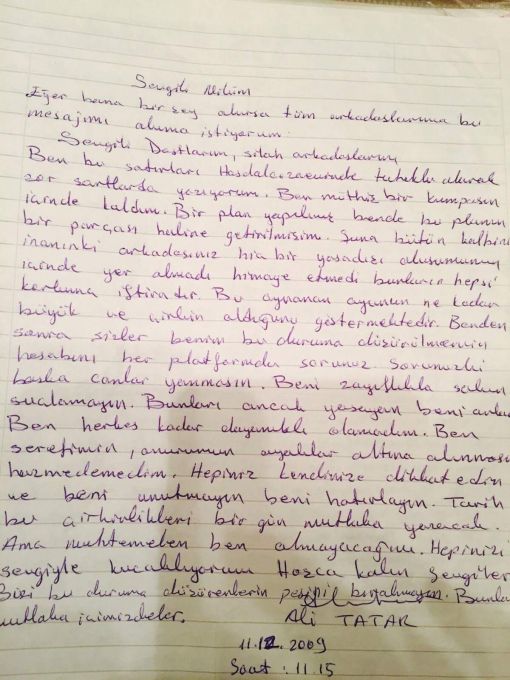 Sevgili Nilüm
Eğer bana bir şey olursa tüm arkadaşlarıma bu
mesajımı okuma istiyorum.
Sevgili Dostlarım, silah arkadaşlarım,
Ben bu satırları Hasdal cezaevinde tutuklu olarak
zor şartlarda yazıyorum. Ben müthiş bir kumpasın
içinde kaldım. Bir plan yapılmış bende bu planın
bir parçası haline getirilmişim. Şuna bütün kalbiniz
inanınki arkadaşınız hiç bir yasadışı oluşumun
içinde yer almadı himaye etmedi bunların hepsi
korkunç iftiradır. Bu oynanan oyunun ne kadar
büyük ve çirkin olduğunu göstermektedir. Benden
sonra sizler benim bu duruma düşürülmemin
hesabını her platformda sorunuz. Sorunuzki
başka canlar yanmasın. Beni zayıflıkla sakın
suçlamayın. Bunları ancak yaşayan beni anlar
Ben herkes kadar dayanıklı olamadım. Ben
şerefimin, onurumun ayaklar altına alınması
hazmedemedim. Hepiniz kendinize dikkat edin
ve beni unutmayın beni hatırlayın. Tarih
bu çirkinlikleri bir gün mutlaka yenecek.
Ama muhtemelen ben olmayacağım. Hepinizi
sevgiyle kucaklıyorum Hoşca kalın Sevgiler
Bizi bu duruma düşürenlerin peşini bırakmayın. Bunlar
mutlaka içimizdeler.
Ali TATAR
11.12.2009
Saat : 11.15